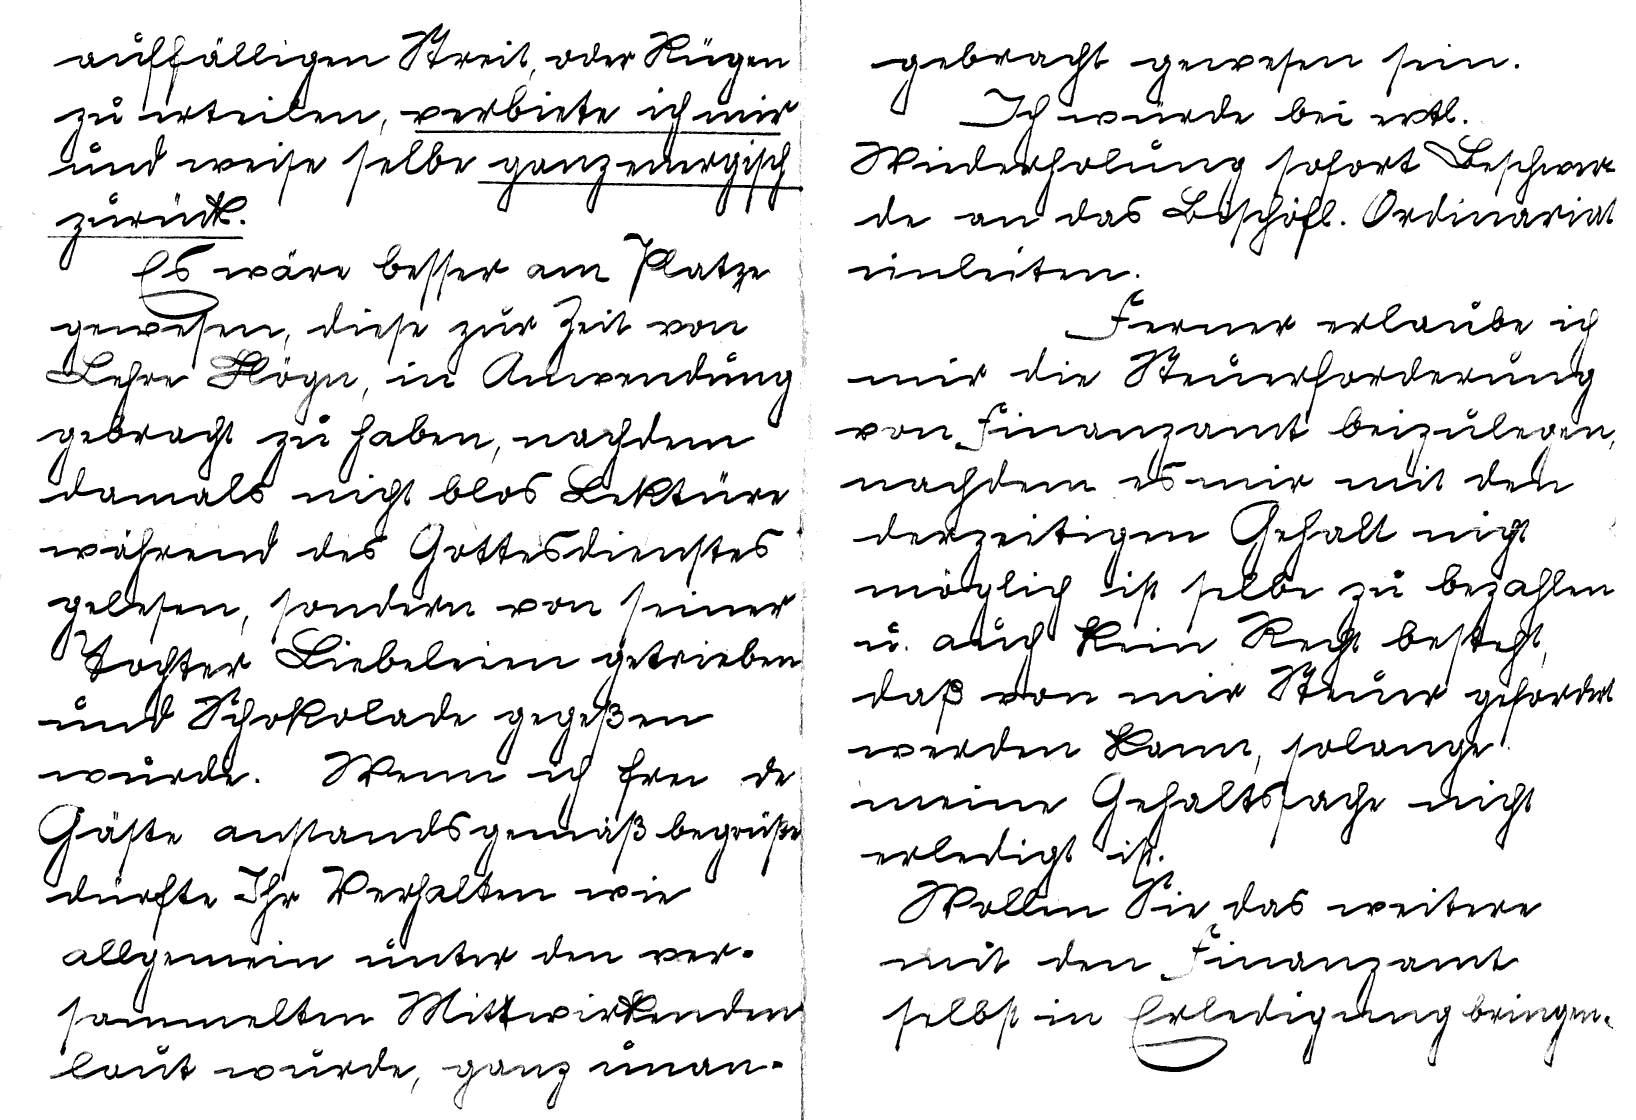 auffälligen Streit, oder Rügen
zu erteilen, verbiete ich mir
und weise selbe ganz energisch
zurück.
Es wäre besser am Platze
gewesen, diese zur Zeit von
Lehre Högn, in Anwendung
gebracht zu haben, nachdem
damals nicht blos Lektüre
während des Gottesdienstes
gelesen, sondern von seiner
Tochter Liebeleien getrieben
und Schokolade gegeßen
wurde. Wenn ich frei de
Gäste anstandsgemäß begrüße
dürfte Ihr Verhalten wie
allgemein unter den ver-
sammelten Mittwirkenden
laut wurde, ganz unan-
gebracht gewesen sein.
Ich würde bei evtl.
Wiederholung sofort Beschwer
de an das Bischöfl. Ordinariat
einleiten.
Ferner erlaube ich
mir die Steuerforderung
von Finanzamt beizulegen,
nachdem es mir mit den
derzeitigen Gehalt nicht
möglich ist selbe zu bezahlen
u. auch kein Recht besteht,
daß von mir Steuer gefordert
werden kann, solange
meine Gehaltssache nicht
erledigt ist.
Wollen Sie das weitere
mit den Finanzamt
selbst in Erledigung bringen.